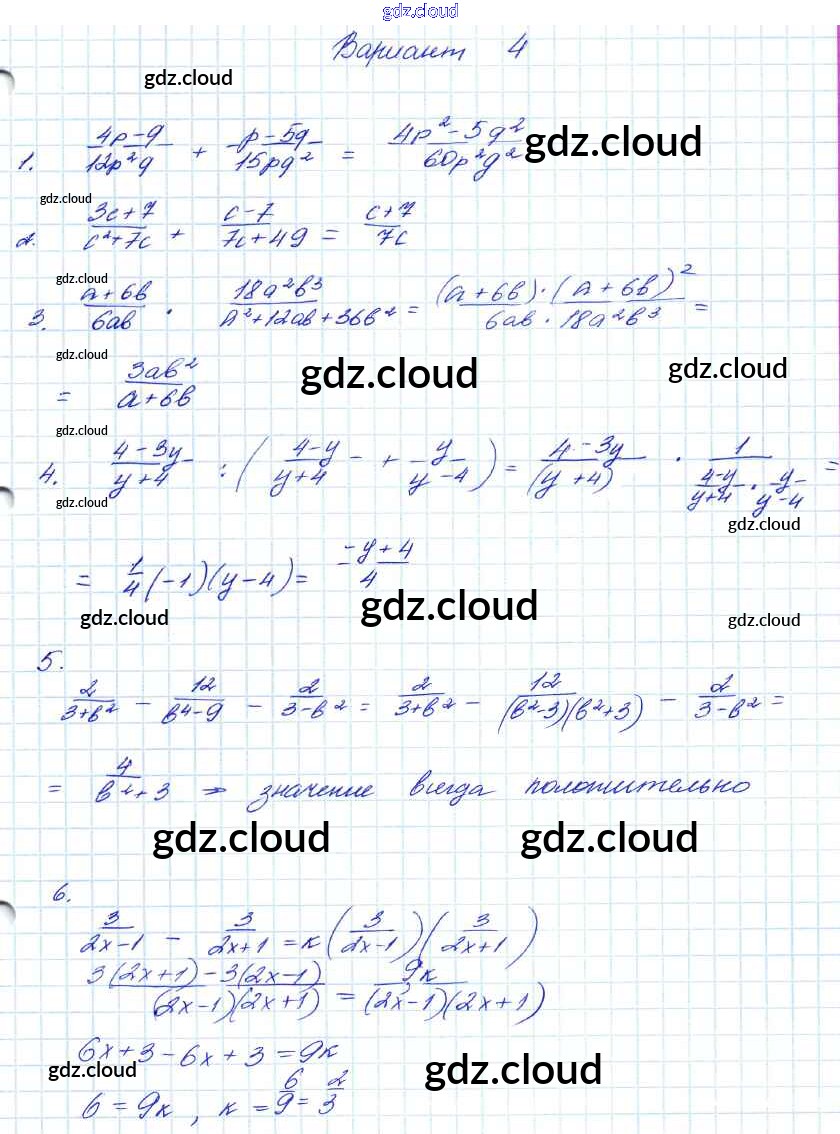 gdz.cloud
Вариант 4
gdz.cloud
1. (4p-q)/(12p²q) + (p-5q)/(15pq²) = (4p²-5q²)/(60p²q²) gdz.cloud
gdz.cloud
2. (3c+7)/(c²+7c) + (c-7)/(7c+49) = (c+7)/(7c)
gdz.cloud
3. (a+6b)/(6ab) · (18a²b³)/(a²+12ab+36b²) = ((a+6b)·(a+6b)²)/(6ab·18a²b³) =
gdz.cloud
= (3ab²)/(a+6b) gdz.cloud gdz.cloud
gdz.cloud
4. (4-3y)/(y+4) : ((4-y)/(y+4) + y/(y-4)) = (4-3y)/(y+4) · 1/((4-y)/(y+4) · y/(y-4)) =
gdz.cloud gdz.cloud
= 1/4(-1)(y-4) = (-y+4)/4
gdz.cloud gdz.cloud gdz.cloud
5.
2/(3+b²) - 12/(b⁴-9) - 2/(3-b²) = 2/(3+b²) - 12/((b²-3)(b²+3)) - 2/(3-b²) =
= 4/(b²+3) ⇒ значение всегда положительно
gdz.cloud gdz.cloud
6.
3/(2x-1) - 3/(2x+1) = к(3/(2x-1))(3/(2x+1))
(3(2x+1)-3(2x-1))/((2x-1)(2x+1)) = 9к/((2x-1)(2x+1))
6x+3-6x+3=9к
gdz.cloud gdz.cloud
6=9к, к=6/9=2/3